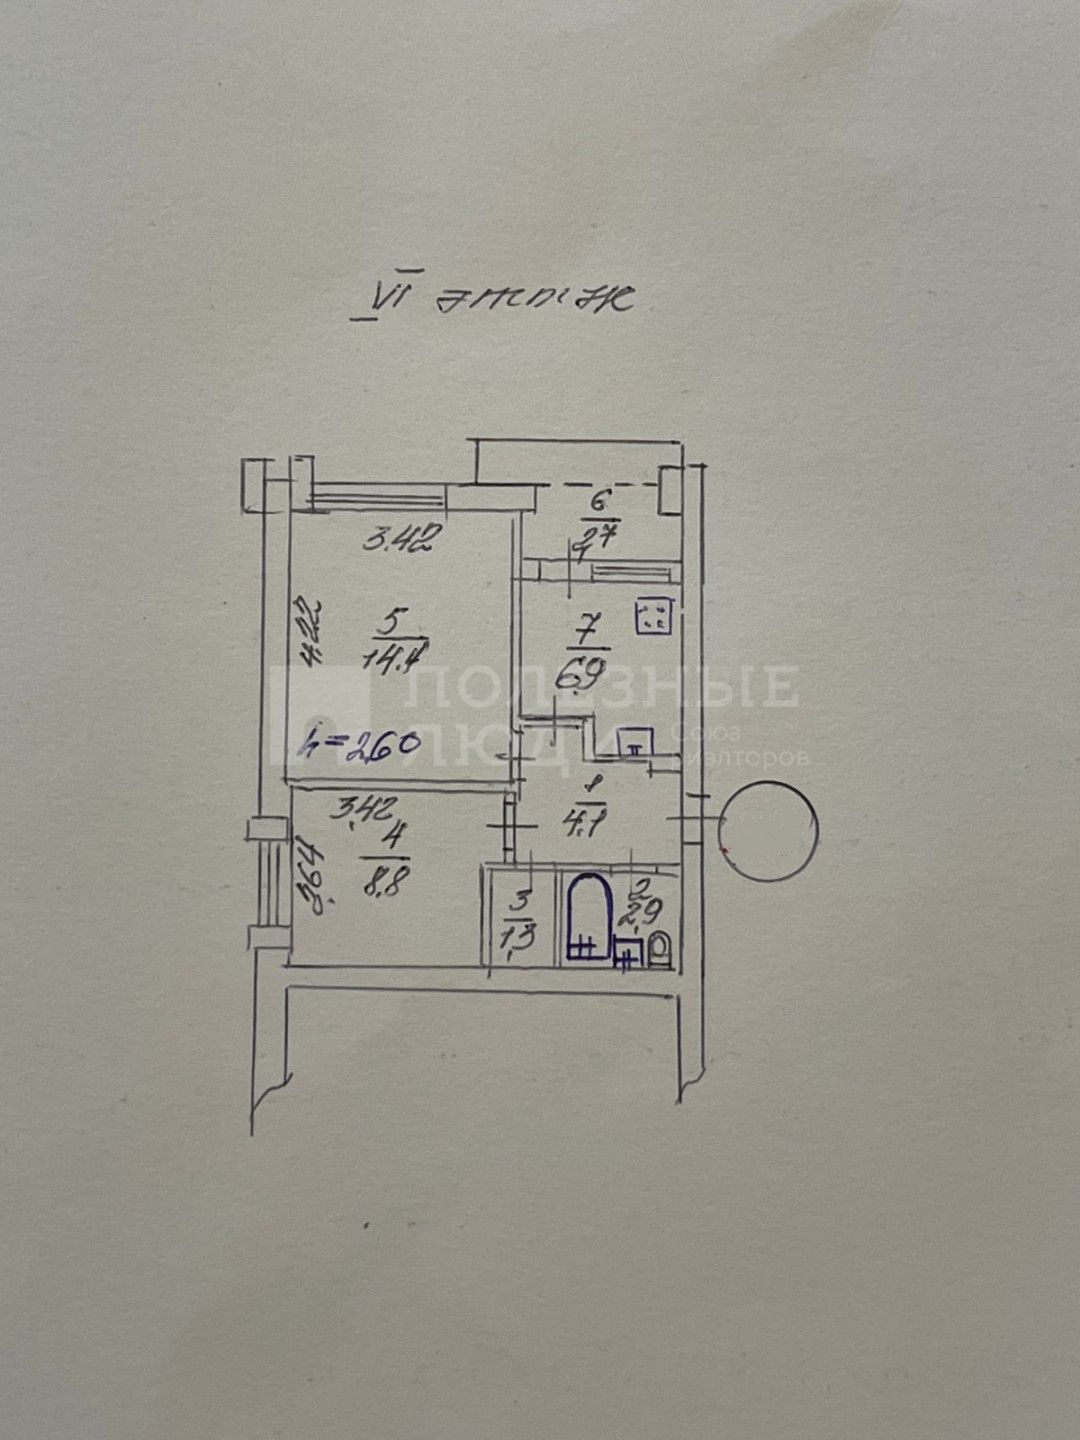 VI этаж
6
2,7
3.42
4.22
5
14.4
7
6,9
ПОЛЕЗНЫЕ
ЛЮДИ Союз
риэлторов
h=2,60
3,42
1
4.1
4
8.8
3,64
3
1,3
2
2,9